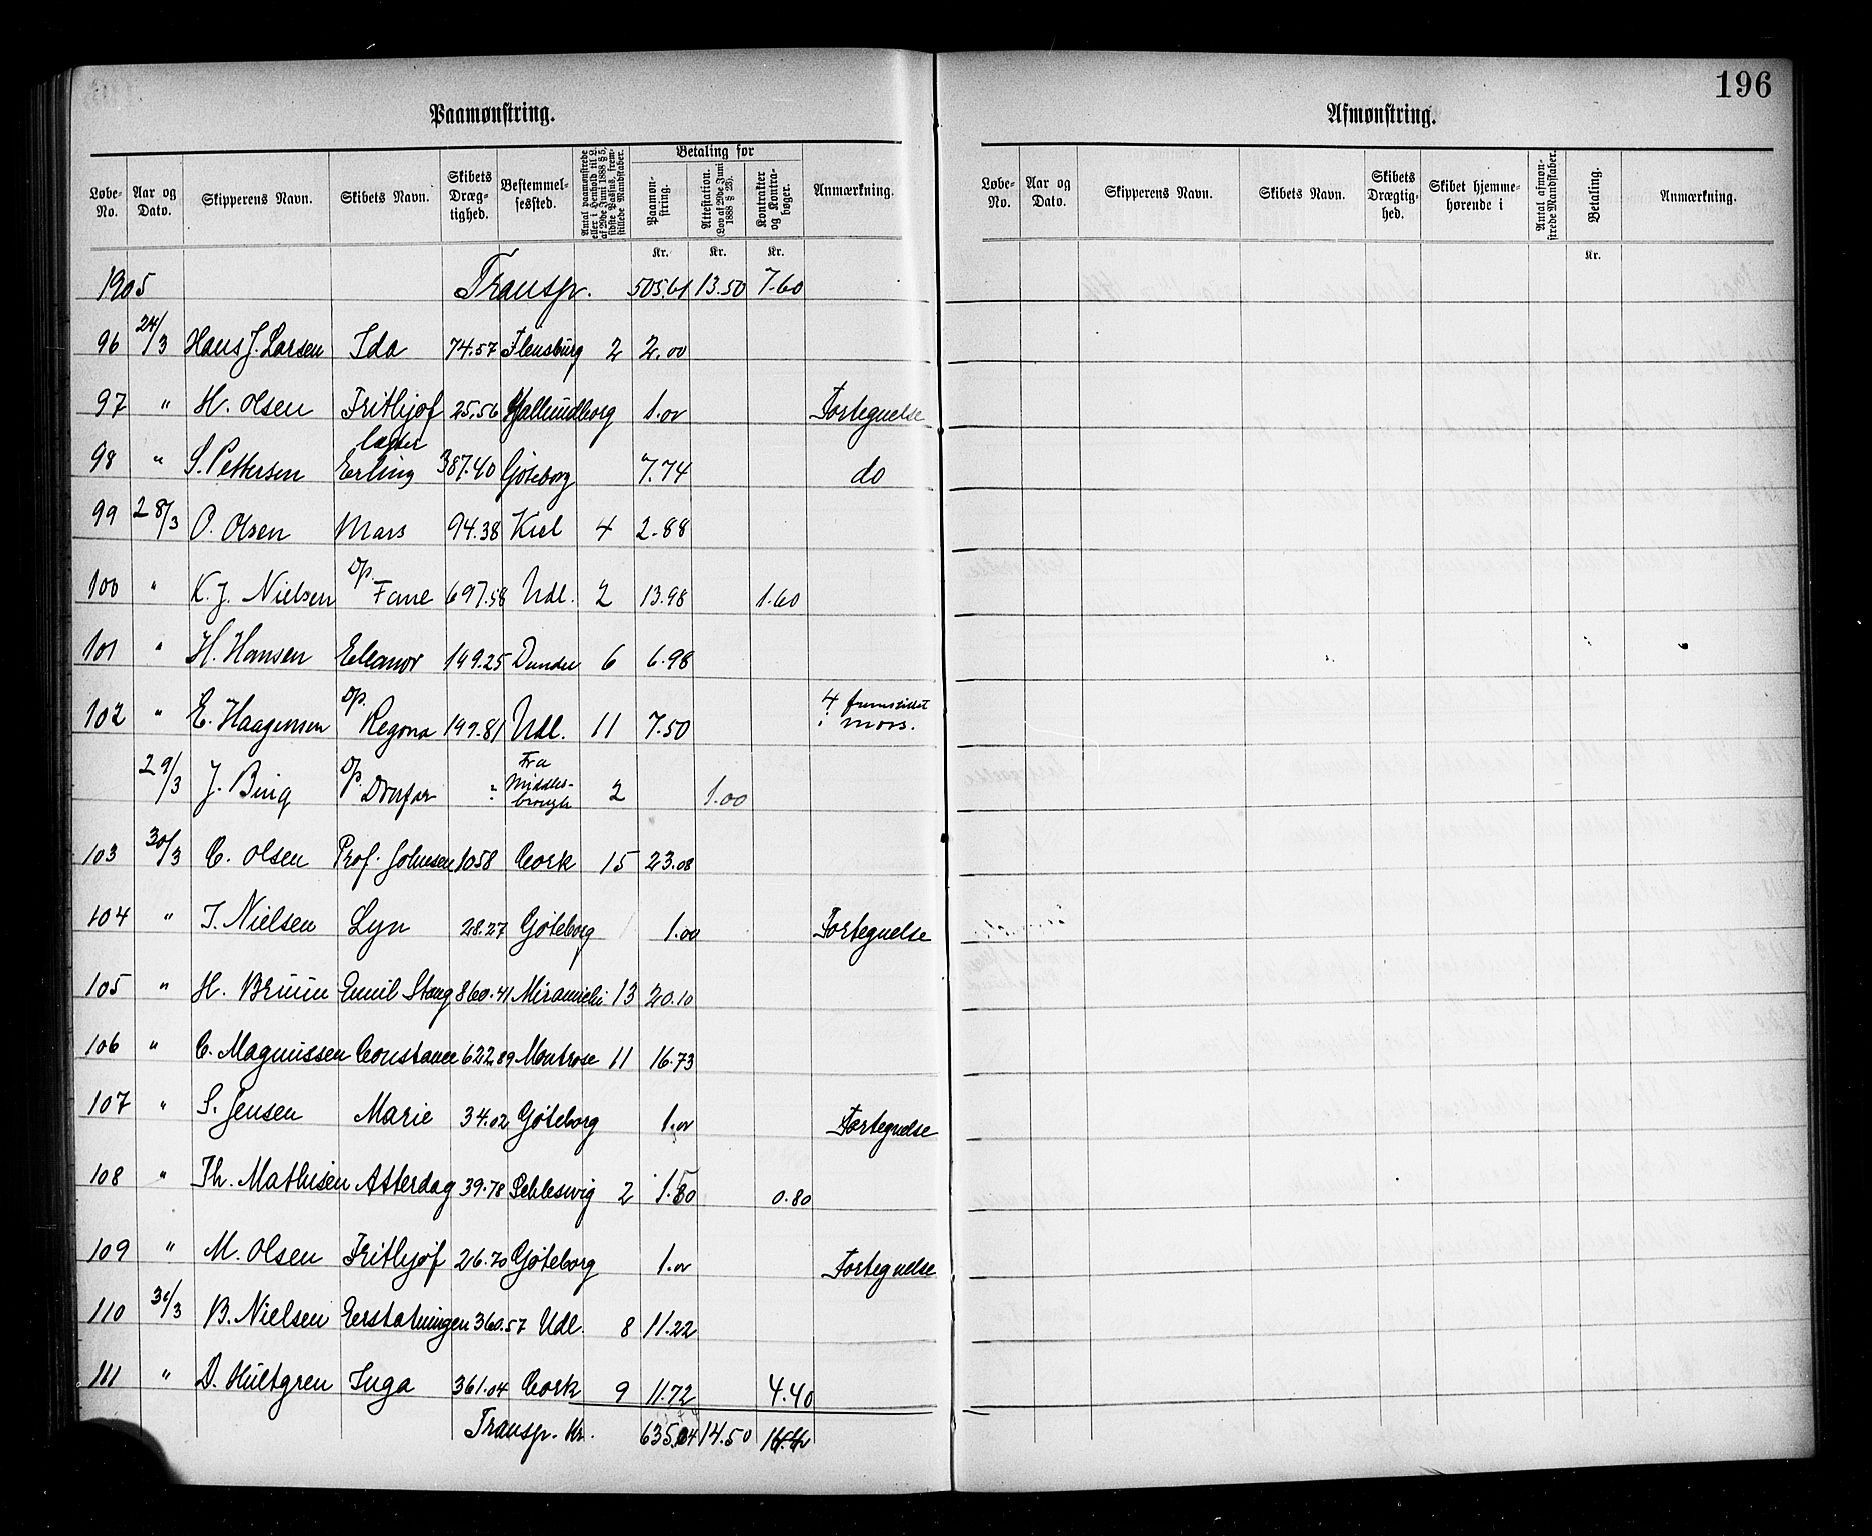 196
Paamønstring.
Afmønstring.
Løbe-No. Aar og Dato. Skipperens Navn. Skibets Navn. Skibets Dræg-tighed. Bestemmel-sessted. Antal paamønstrede eller i Henhold til L. af 29de Juni 1888 § 5, sidste Passus, frem-stillede Mandskaber. Betaling for Paamøn-string. Attestation. (Lov af 29de Juni 1888 § 23). Kontrakter og Kontra-bøger. Anmærkning.
Løbe-No. Aar og Dato. Skipperens Navn. Skibets Navn. Skibets Drægtig-hed. Skibet hjemme-hørende i Antal afmøn-strede Mandskaber. Betaling. Anmærkning.
Kr. Kr. Kr. Kr.
1905 Transp. 505,61 13.50 7.60
96 24/3 Hans J. Larsen Ida 74.57 Flensburg 2 2.00
97 " H. Olsen Frithjof 25,56 Kallundborg 1.00 Fortegnelse
98 " S. Pettersen lægter Erling 387.40 Gøteborg 7.74 do
99 28/3 O. Olsen Mars 94.38 Kiel 4 2.88
100 " K. J. Nielsen Dp. Fane 697.58 Udl. 2 13.98 1.60
101 " H. Hansen Eleanor 199.25 Dundee 6 6.98
102 " E. Haagensen Dp. Regona 199.81 Udl. 11 7.50 4 fremstillet i Moss.
29/3 J. Bing Dp. " Fra Middles-brough 2 1.00
103 30/3 C. Olsen Prof. Johnsen 1058 Cork 15 23.08
104 " J. Nielsen Lyn 28.27 Gøteborg 1.00 Fortegnelse
105 " H. Bruun Emil Stang 860.41 Miramichi 13 20.10
106 " C. Magnussen Constance 622.89 Montrose 11 16.73
107 " S. Jensen Marie 34.02 Gøteborg 1.00 Fortegnelse
108 " Th. Mathisen Atterdag 39.78 Schleswig 2 1.80 0.80
109 " M. Olsen Frithjof 26.70 Gøteborg 1.00 Fortegnelse
110 31/3 B. Nielsen Erstatningen 360.57 Udl. 8 11.22
111 " D. Hultgren Inga 361.04 Cork 9 11.72 4.40
Transp. Kr. 635.04 14.50